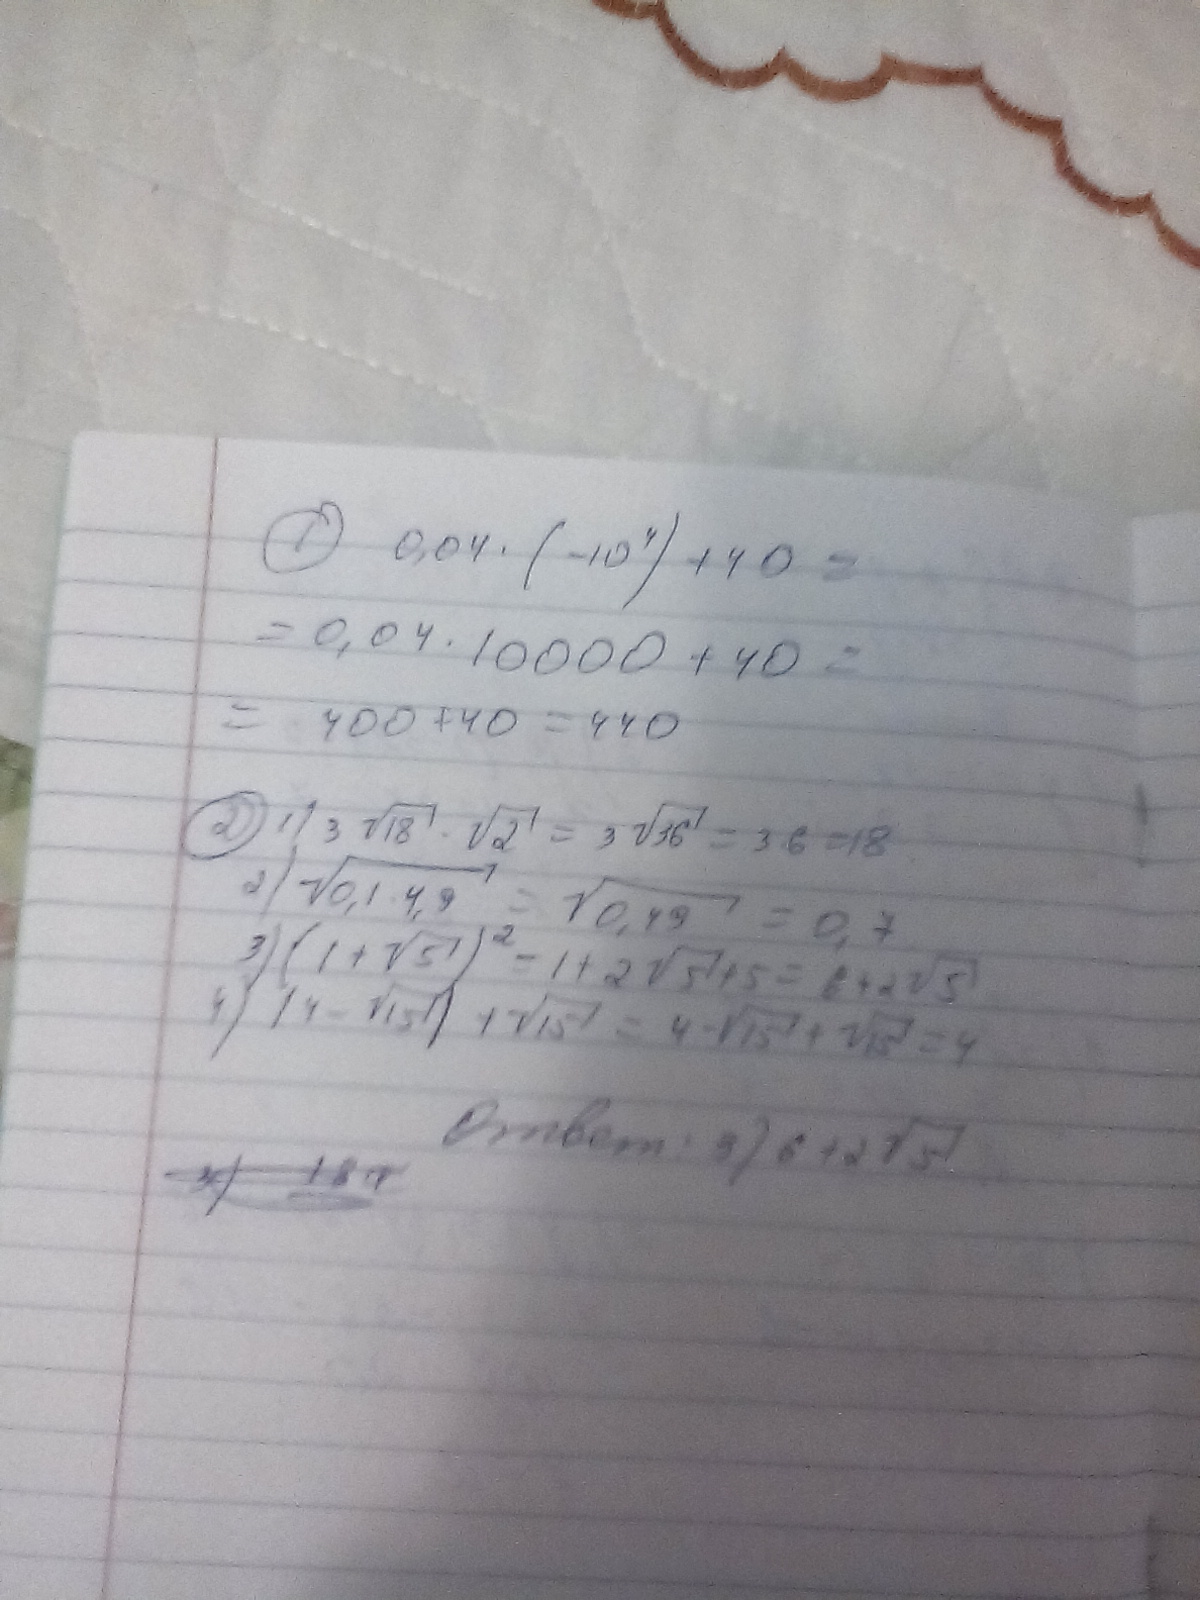 1) 0,04·(-10⁴)+40=
=0,04·10000+40=
= 400+40=440
2) 1) 3√18·√2=3√36=3·6=18
2) √0,1·4,9 = √0,49 = 0,7
3) (1+√5)²=1+2√5+5=6+2√5
4) |4-√15|+√15=4-√15+√15=4
Ответ: 3) 6+2√5